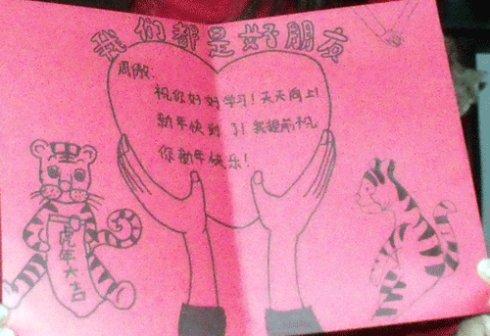 我们都是好朋友
周微:
祝你好好学习!天天向上!
新年快到了!我提前祝
你新年快乐!
虎年大吉